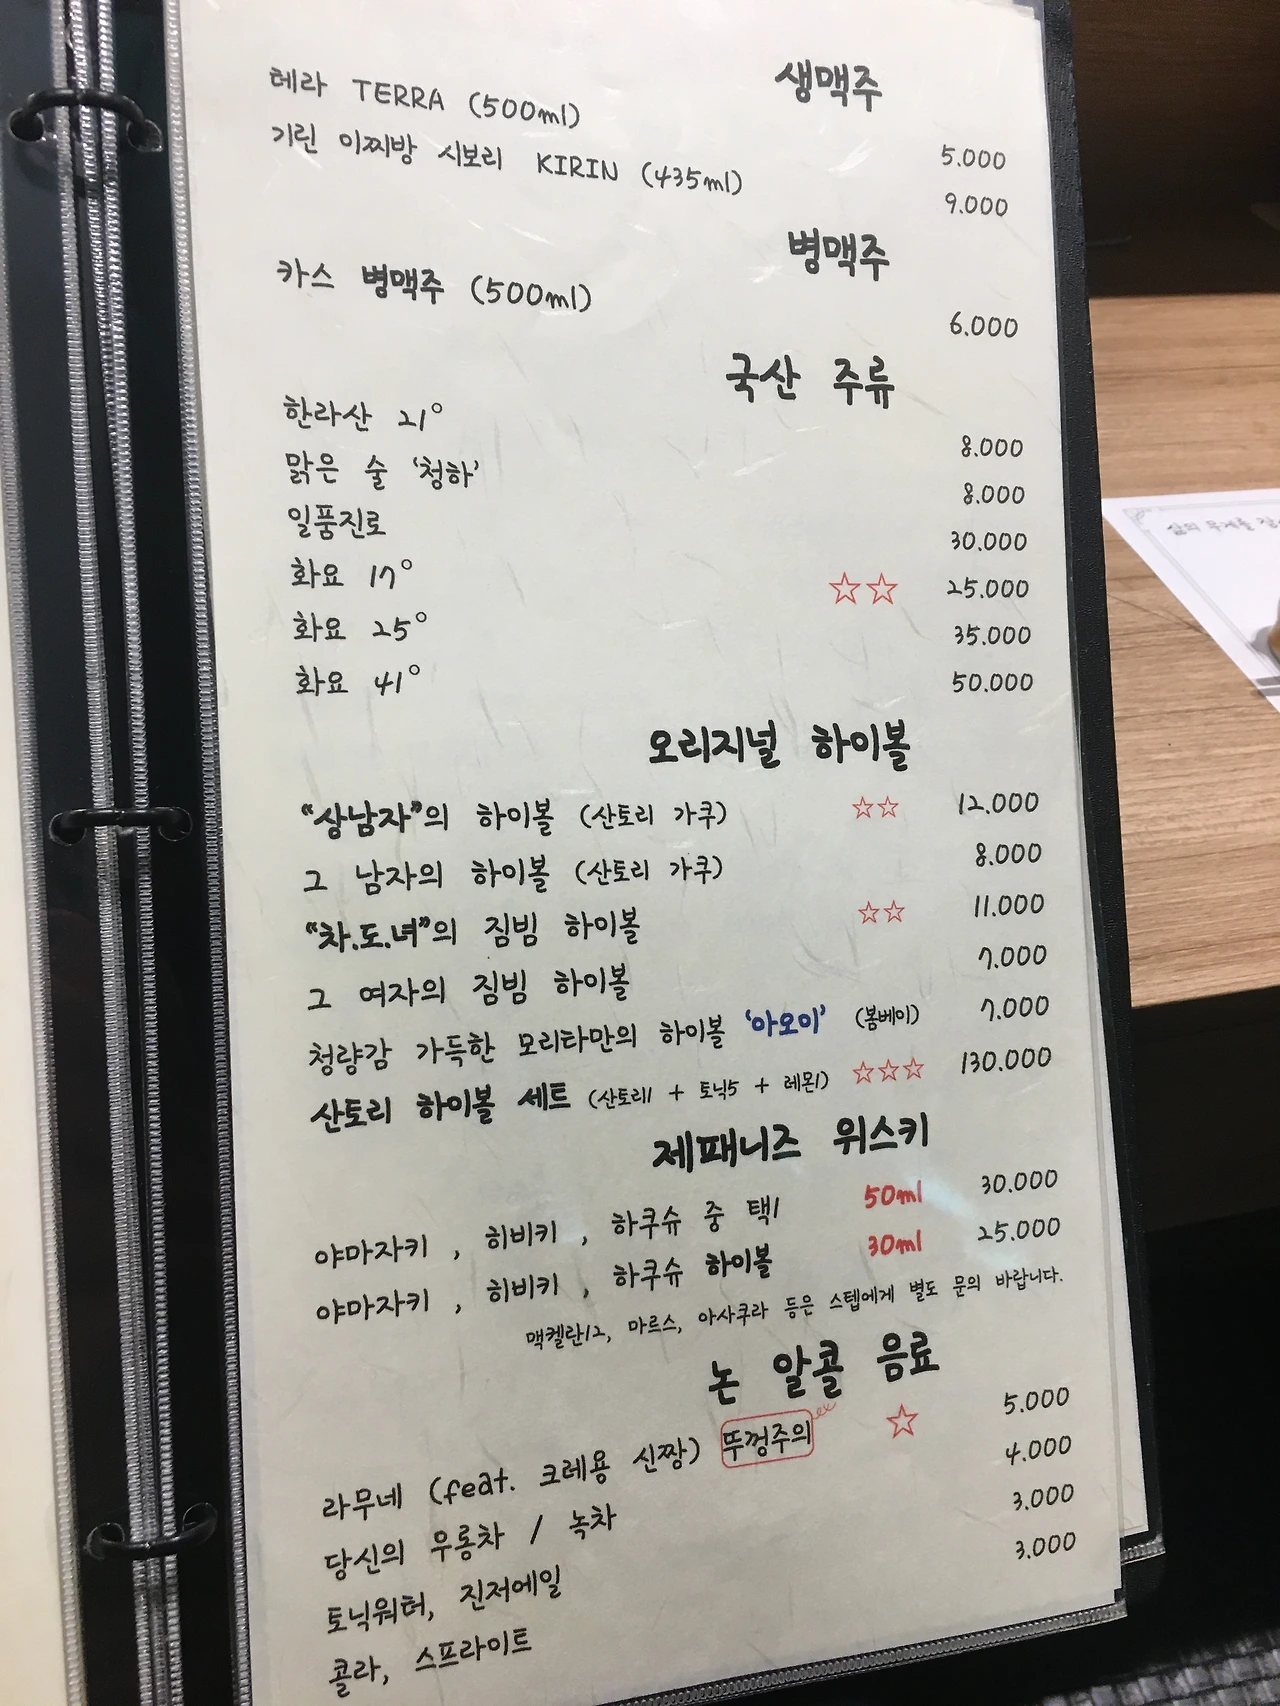 생맥주
테라 TERRA (500ml) 5.000
기린 이찌방 시보리 KIRIN (435ml) 9.000
병맥주
카스 병맥주 (500ml) 6.000
국산 주류
한라산 21° 8.000
맑은 술 '청하' 8.000
일품진로 30.000
화요 17° ☆☆ 25.000
화요 25° 35.000
화요 41° 50.000
오리지널 하이볼
"상남자"의 하이볼 (산토리 가쿠) ☆☆ 12.000
그 남자의 하이볼 (산토리 가쿠) 8.000
"차.도.녀"의 짐빔 하이볼 ☆☆ 11.000
그 여자의 짐빔 하이볼 7.000
청량감 가득한 모리타만의 하이볼 '아오이' (봄베이) 7.000
산토리 하이볼 세트 (산토리1 + 토닉5 + 레몬1) ☆☆☆ 130.000
제패니즈 위스키
야마자키 , 히비키 , 하쿠슈 중 택1 50ml 30.000
야마자키 , 히비키 , 하쿠슈 하이볼 30ml 25.000
맥켈란12, 마르스, 아사쿠라 등은 스텝에게 별도 문의 바랍니다.
논 알콜 음료
라무네 (feat. 크레용 신짱) 뚜껑주의 ☆ 5.000
당신의 우롱차 / 녹차 4.000
토닉워터, 진저에일 3.000
콜라, 스프라이트 3.000
삶의 무게를